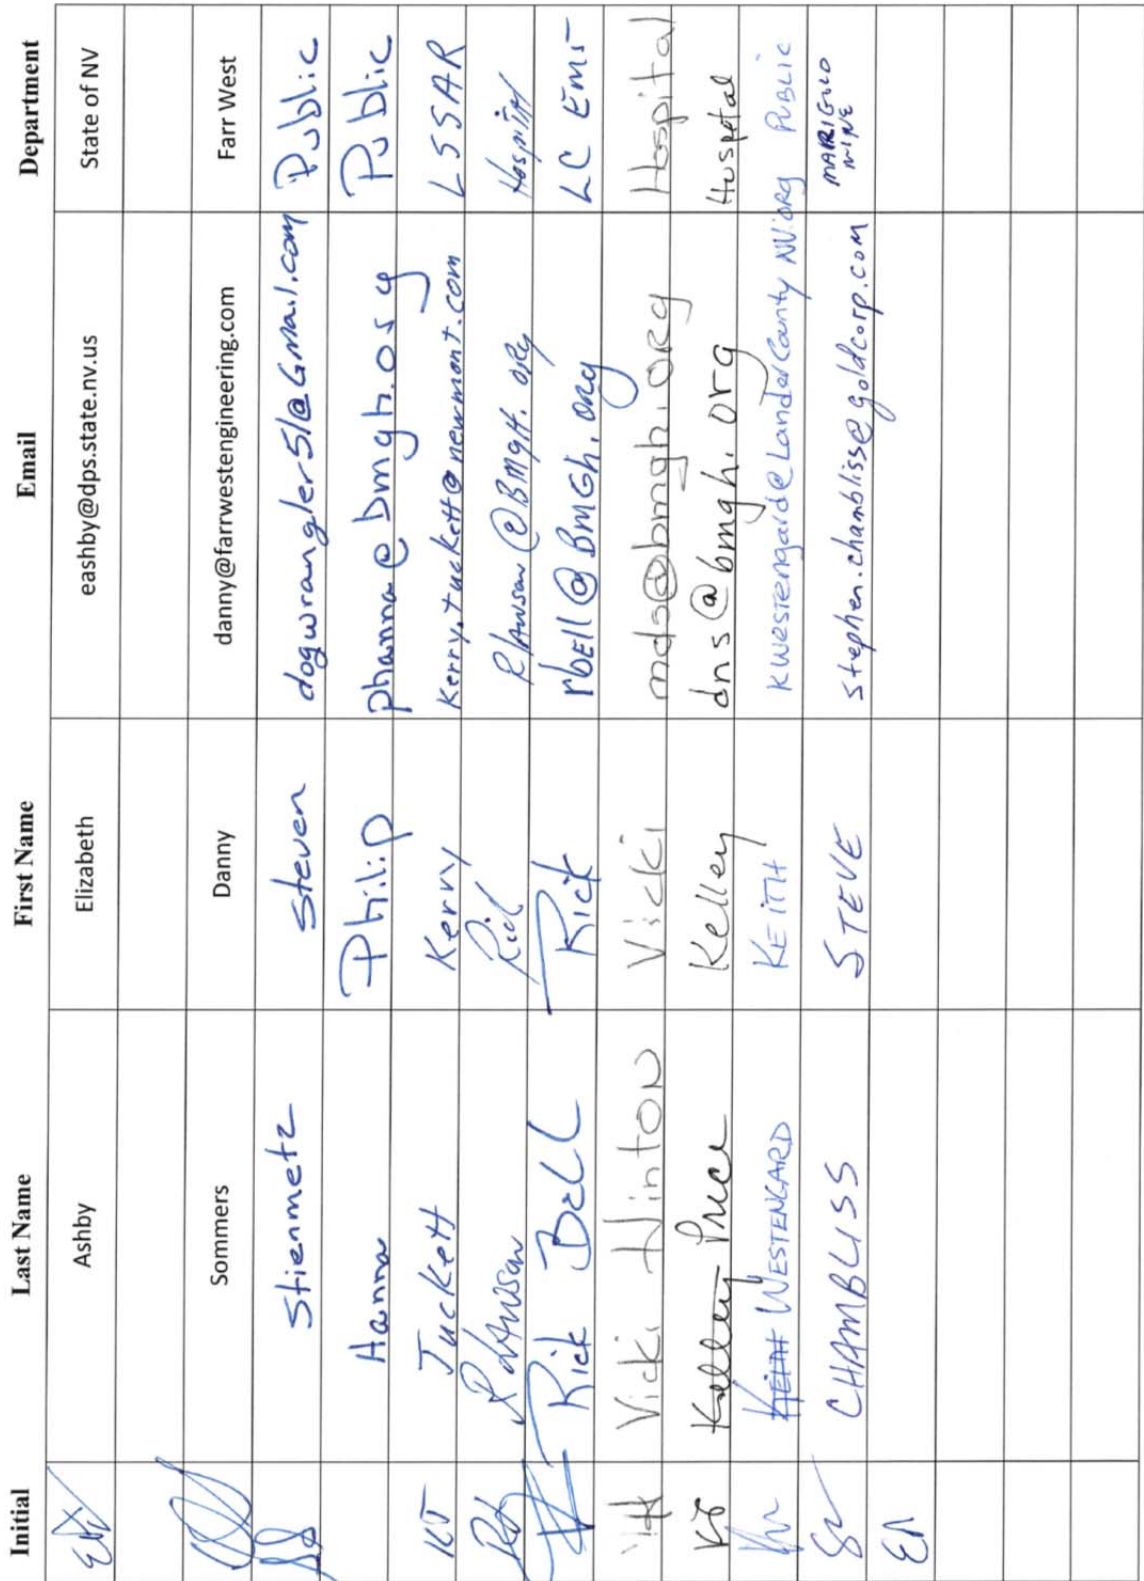 Initial Last Name First Name Email Department
Ashby Elizabeth eashby@dps.state.nv.us State of NV
Sommers Danny danny@farrwestengineering.com Farr West
Stienmetz Steven dogwrangler51@Gmail.com Public
Hanna Philip phanna@bmgh.org Public
KT Tuckett Kerry Kerry.tuckett@newmont.com LSSAR
Rick Hospital
Rick Bell Rick rbell@BMGh.org LC EMS
VH Vicki Hinton Vicki mds@bmgh.org Hospital
Kelley Price Kelley dns@bmgh.org Hospital
Keith WESTENGARD KEITH Kwestengard@LanderCountyNV.org PUBLIC
CHAMBLISS STEVE Stephen.chambliss@goldcorp.com MARIGOLD
MINE
EA